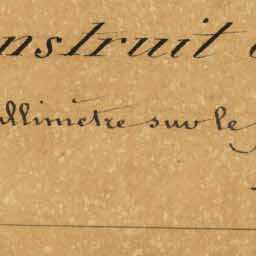 nstruit
llimètre sur le